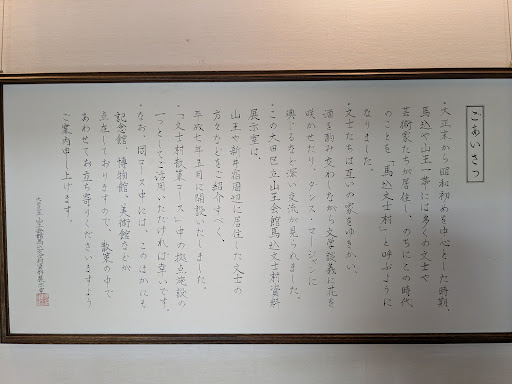 ごあいさつ
・大正末から昭和初めを中心とした時期、
馬込や山王一帯には多くの文士や
芸術家たちが居住し、のちにこの時代
のことを「馬込文士村」と呼ぶように
なりました。
・文士たちは互いの家をゆきかい、
酒を酌み交わしながら文学談義に花を
咲かせたり、ダンス、マージャンに
興じるなど深い交流が見られました。
・この大田区立山王会館馬込文士村資料
展示室は、
山王や新井宿周辺に居住した文士の
方々などをご紹介すべく、
平成七年五月に開設いたしました。
・「文士村散策コース」中の拠点施設の
一つとしてご活用いただければ幸いです。
・なお、同コース中には、このほかにも
記念館、博物館、美術館などが
点在しておりますので、散策の中で
あわせてお立ち寄りくださいますよう
ご案内申し上げます。
大田区立山王会館馬込文士村資料展示室